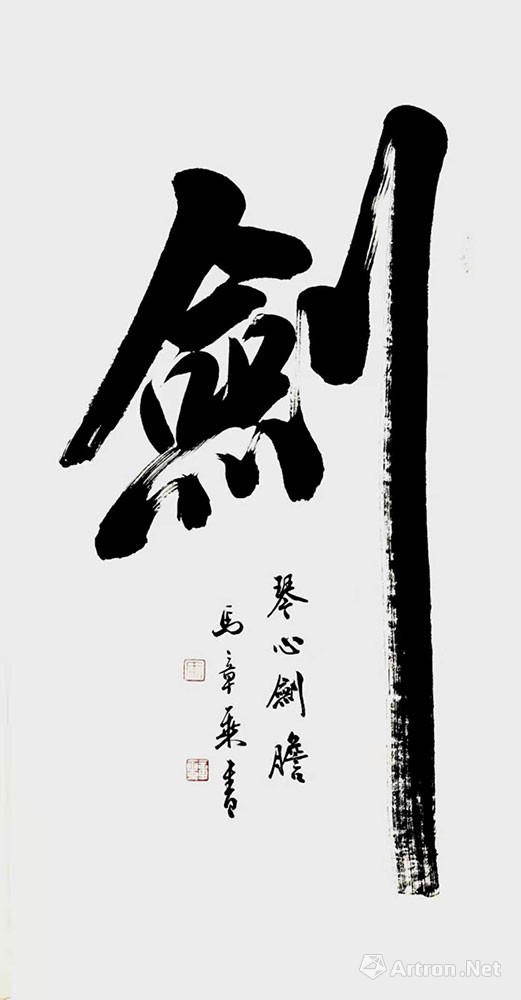 劍
琴心劍膽
馬章乘書
Artron.Net